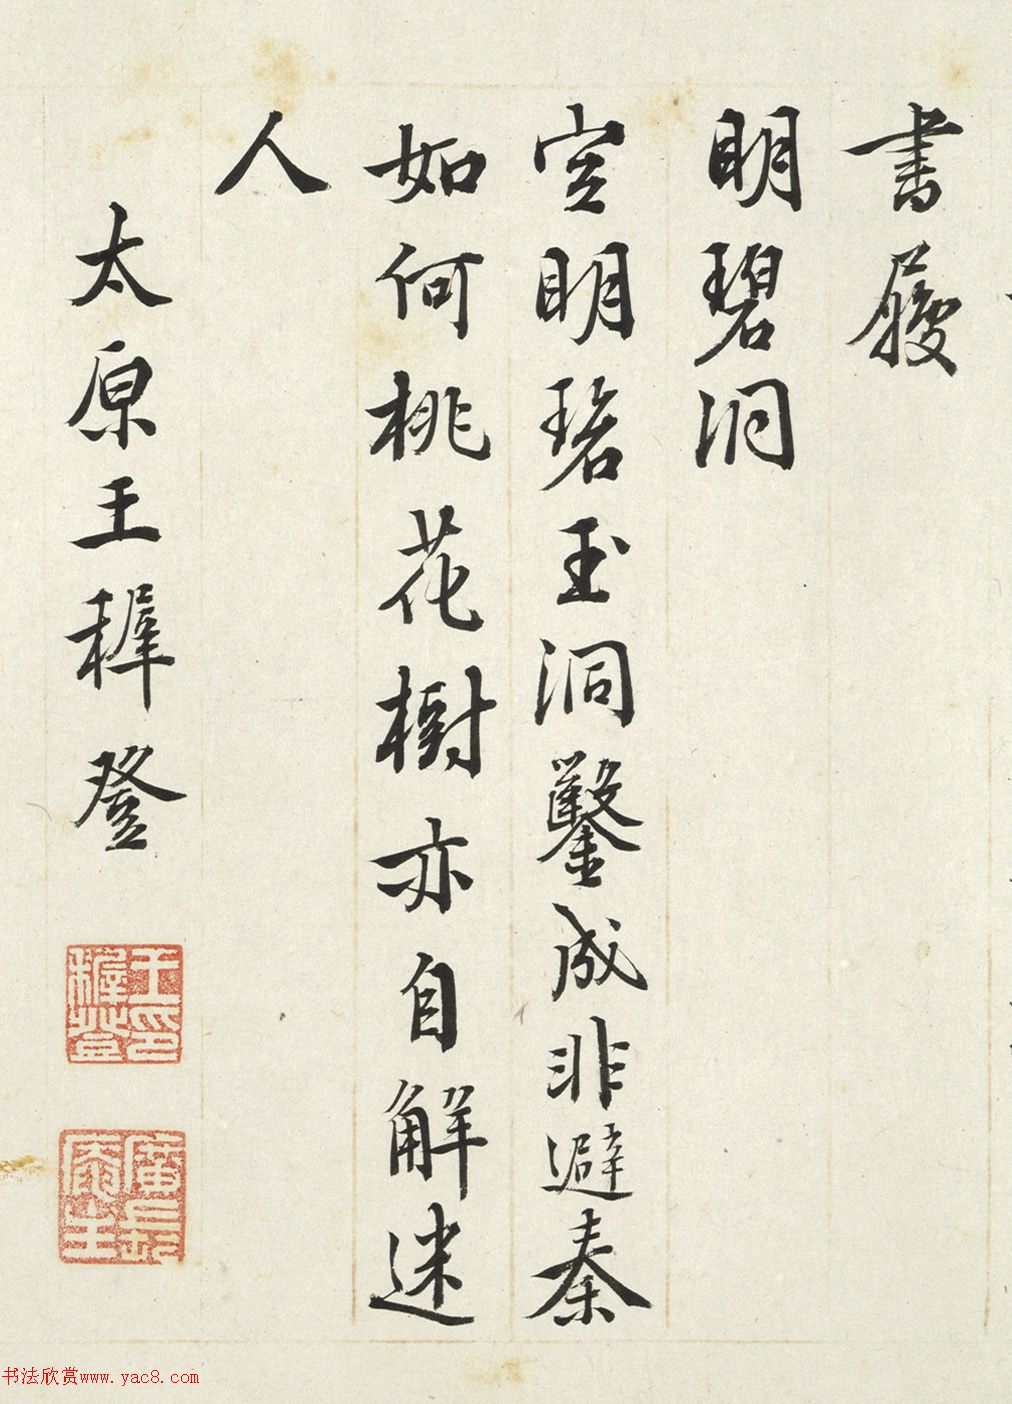 書履
明碧洞
空明碧玉洞鑿成非避秦
如何桃花樹亦自解迷
人
太原王穉登
王印穉登
廣長庵主
书法欣赏www.yac8.com